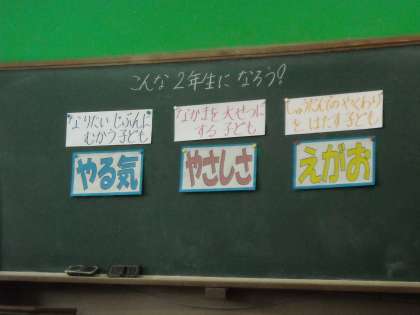 こんな2年生になろう!
なりたいじぶんに
むかう子ども
なかまを大せつに
する子ども
しゅうだんでのやくわり
をはたす子ども
やる気
やさしさ
えがお